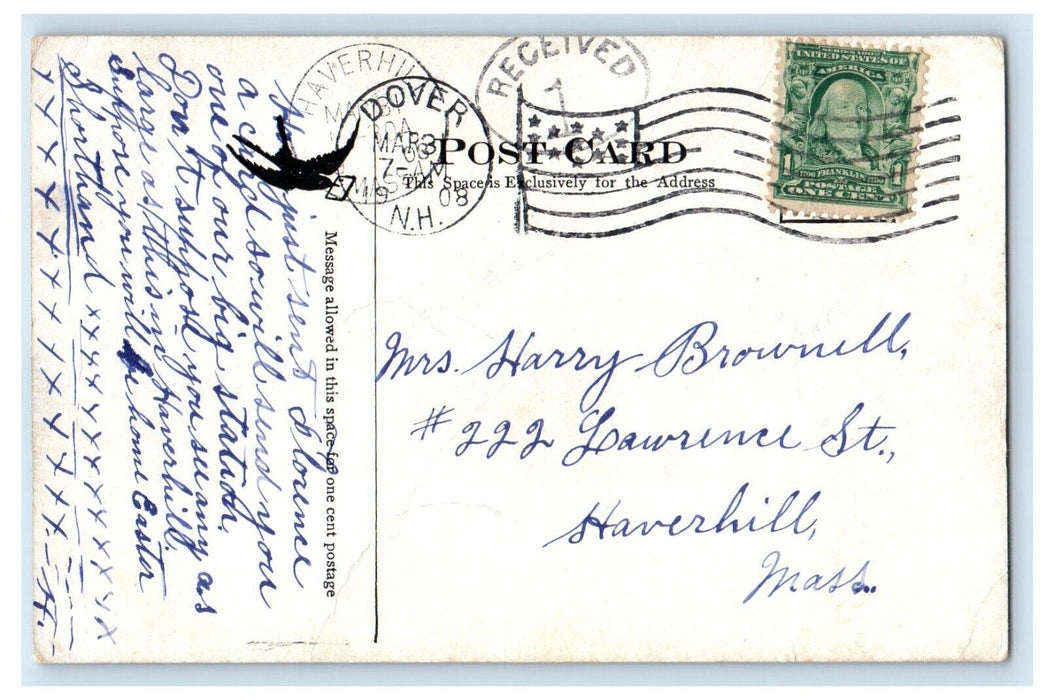 HAVERHILL
DOVER
MAR 3
7-AM
08
N.H.
RECEIVED
1
UNITED STATES OF
AMERICA
1
FRANKLIN
POSTAGE
ONE CENT
POST CARD
This Space is Exclusively for the Address
Message allowed in this space for one cent postage
Have just sent Florence
a card so will send you
one of our big station.
Don't suppose you see any as
large as this in Haverhill.
Suppose you will be home Easter
Shorthand x x y y y x x x x x y x
y y y y x x x x y y x x. - H. -
Mrs. Harry Brownell,
# 222 Lawrence St.,
Haverhill,
Mass.